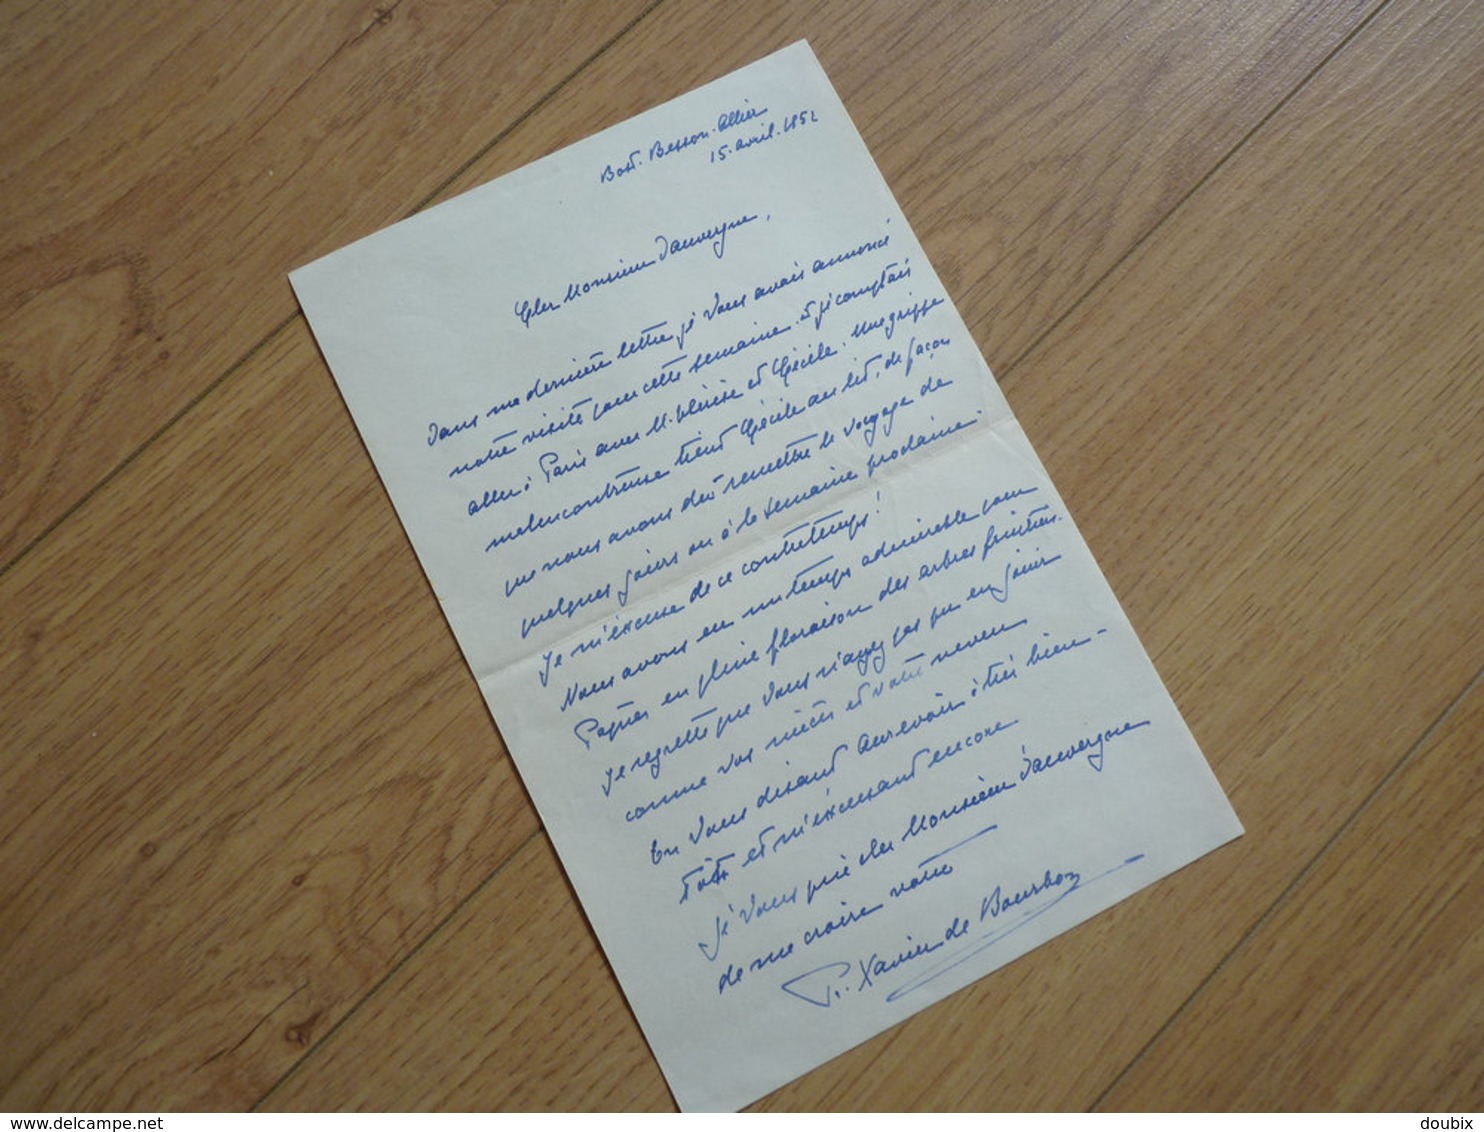 Bost. Besson. Allier
15. avril. 1852
Cher Monsieur Dauvergne,
Dans ma dernière lettre je vous avais annoncé
notre visite pour cette semaine. et je comptais
aller à Paris avec M. Thérèse et Cécile. Une grippe
malencontreuse tient Cécile au lit, de façon
que nous avons dû remettre le voyage de
quelques jours ou à la semaine prochaine.
Je m'excuse de ce contretemps!
Nous avons eu un temps admirable pour
Pâques en pleine floraison des arbres fruitiers.
Je regrette que vous n'ayez pas pu en jouir
comme vos nièces et votre neveu
En vous disant aurevoir à très bien-
tôt et m'excusant encore
je vous prie cher Monsieur Dauvergne
de me croire votre
Pr. Xavier de Bourbon
delcampe.net
doubix